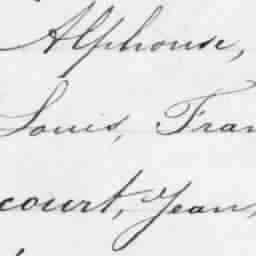 Alphonse,
Louis, Fran
court, Jean,